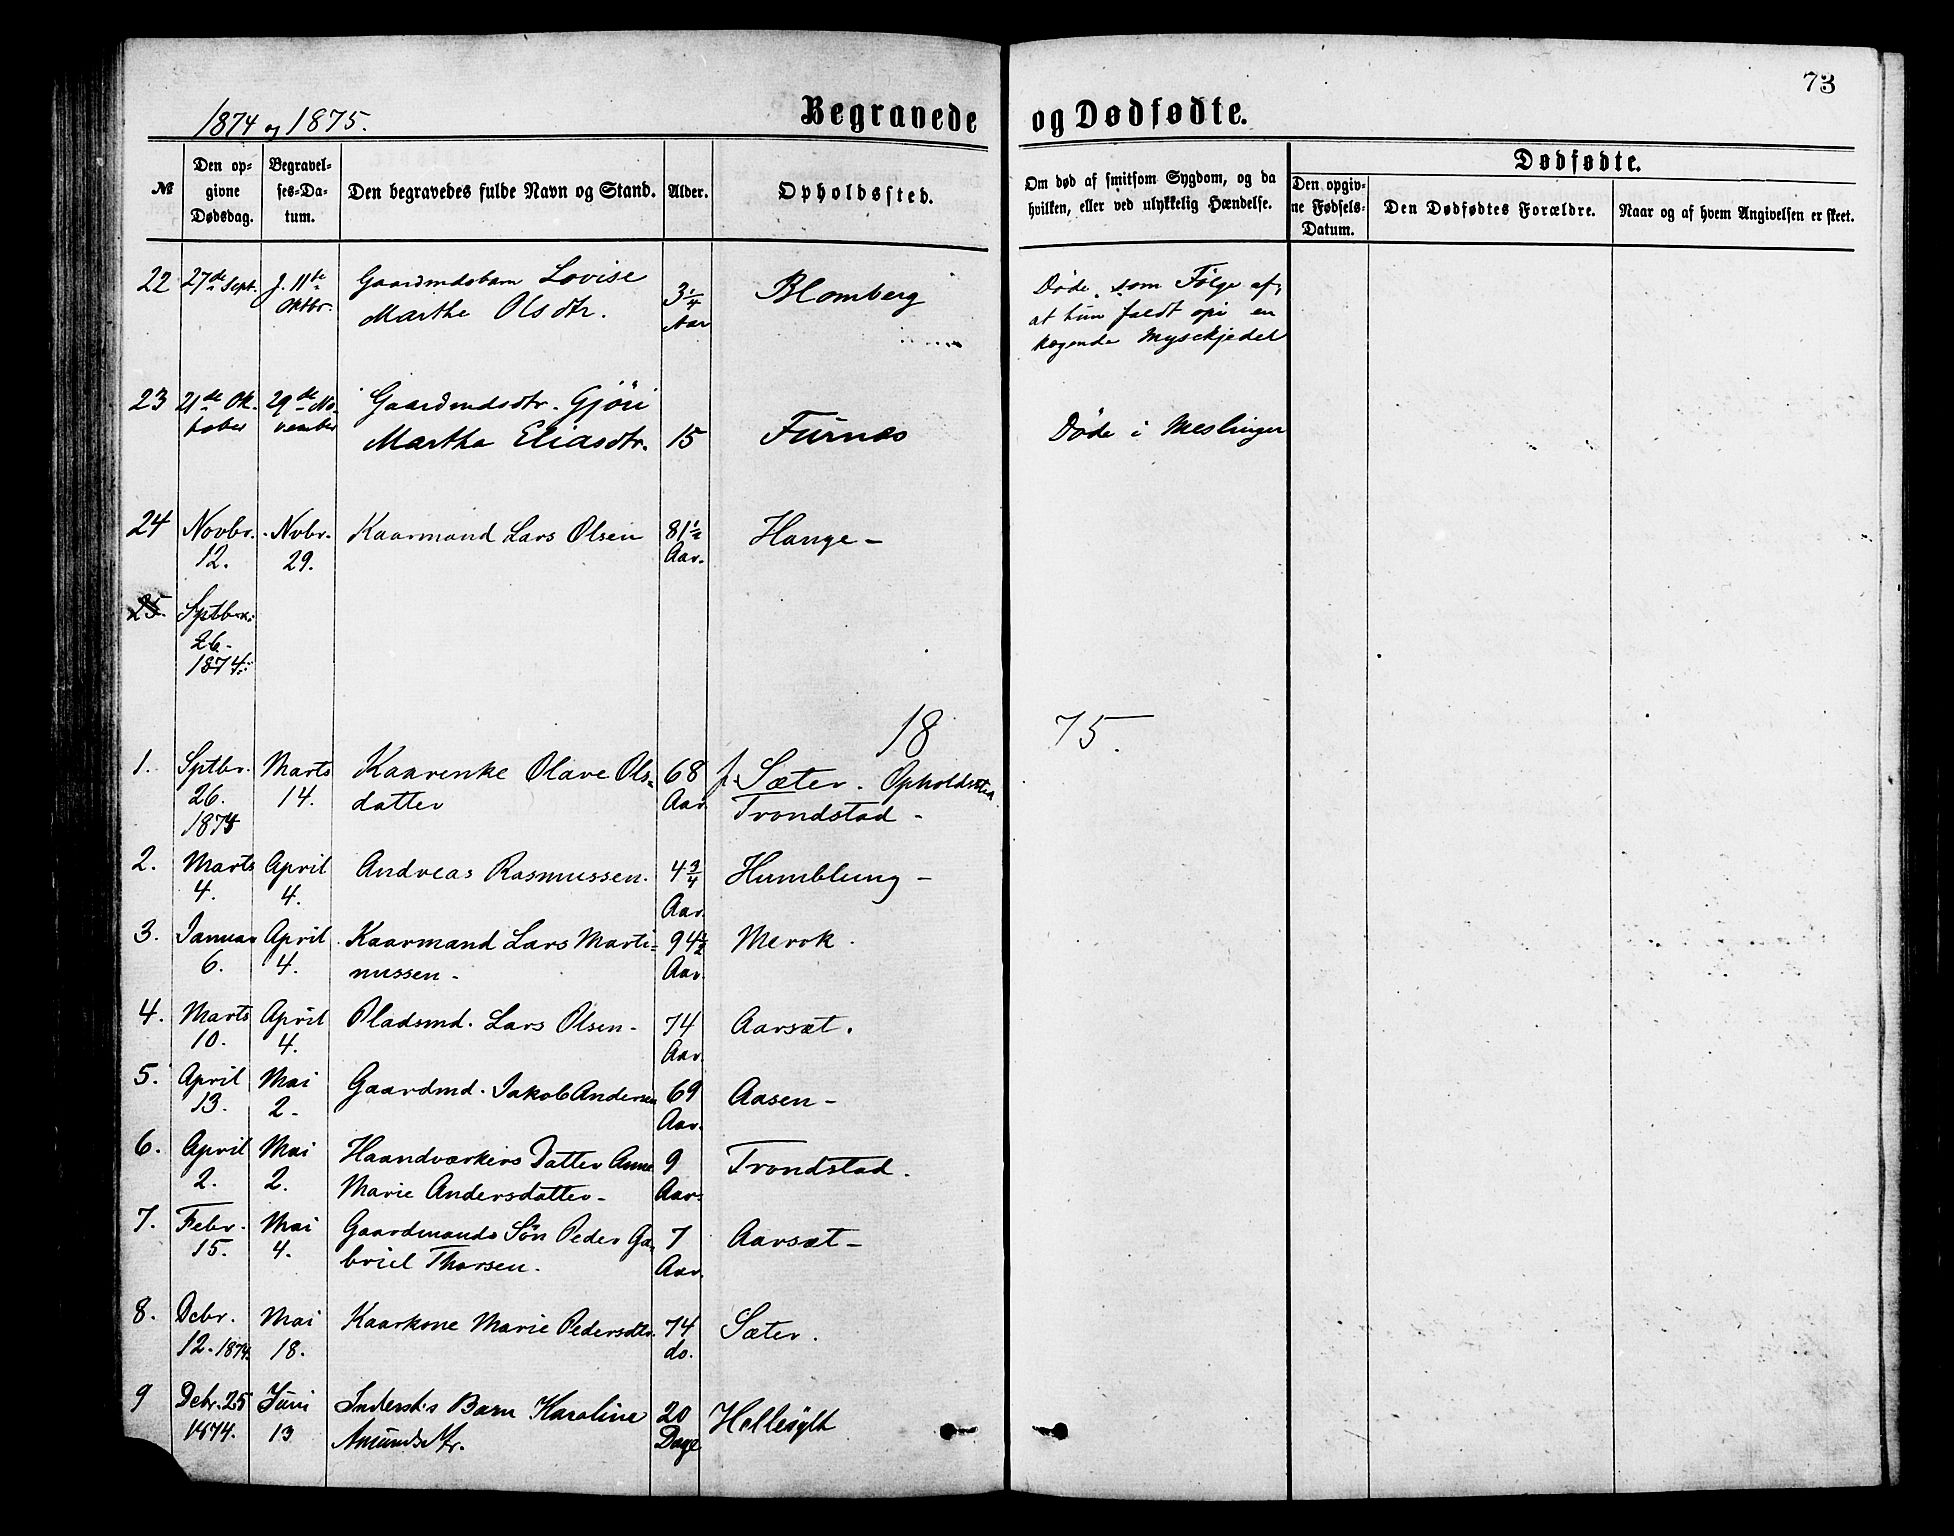 73
1874 og 1875.
Begravede og Dødfødte.
№
Den opgivne Dødsdag.
Begravelses-Datum.
Den begravedes fulde Navn og Stand.
Alder.
Opholdssted.
Om død af smitsom Sygdom, og da hvilken, eller ved ulykkelig Hændelse.
Dødfødte.
Den opgivne Fødsels-Datum.
Den Dødfødtes Forældre.
Naar og af hvem Angivelsen er skeet.
22 27de Sept. J. 11te Oktbr. Gaardmdsbarn Lovise Marthe Olsdtr. 3¼ Aar Blomberg Døde som Følge af, at hun faldt opi en kogende Mysekjedel
23 21de Oktober 29de November Gaardmdsdtr. Gjöri Martha Eliasdtr. 15 Furnes Døde i Meslinger
24 Novbr. 12. Nvbr. 29. Kaarmand Lars Olsen 81½ Aar. Hauge -
25. Sptbr. 26. 1874.
1875.
1. Sptbr. 26. 1874 Marts 14. Kaarenke Olave Olsdatter 68 Aar f. Sæter. Opholdssted Trondstad -
2. Marts 4. April 4. Andreas Rasmussen. 4¾ Aar. Humblung -
3. Januar 6. April 4. Kaarmand Lars Martinussen - 94½ Aar. Merok.
4. Marts 10. April 4. Pladsmd. Lars Olsen - 74 Aar. Aarsæt.
5. April 13. Mai 2. Gaardmd. Jakob Andersen 69 Aar. Aasen -
6. April 2. Mai 2. Haandværkers Datter Anne Marie Andersdatter - 9 Aar. Trondstad.
7. Febr. 15. Mai 4. Gaardmands Søn Peder Gabriel Thorsen. 7 Aar. Aarsæt -
8. Debr. 12. 1874. Mai 18. Kaarkone Marie Pedersdtr. 74 do. Sæter.
9 Debr. 25 1874. Juni 13 Inderst's Barn Karoline Amundsdtr. 20 Dage Hellesylt